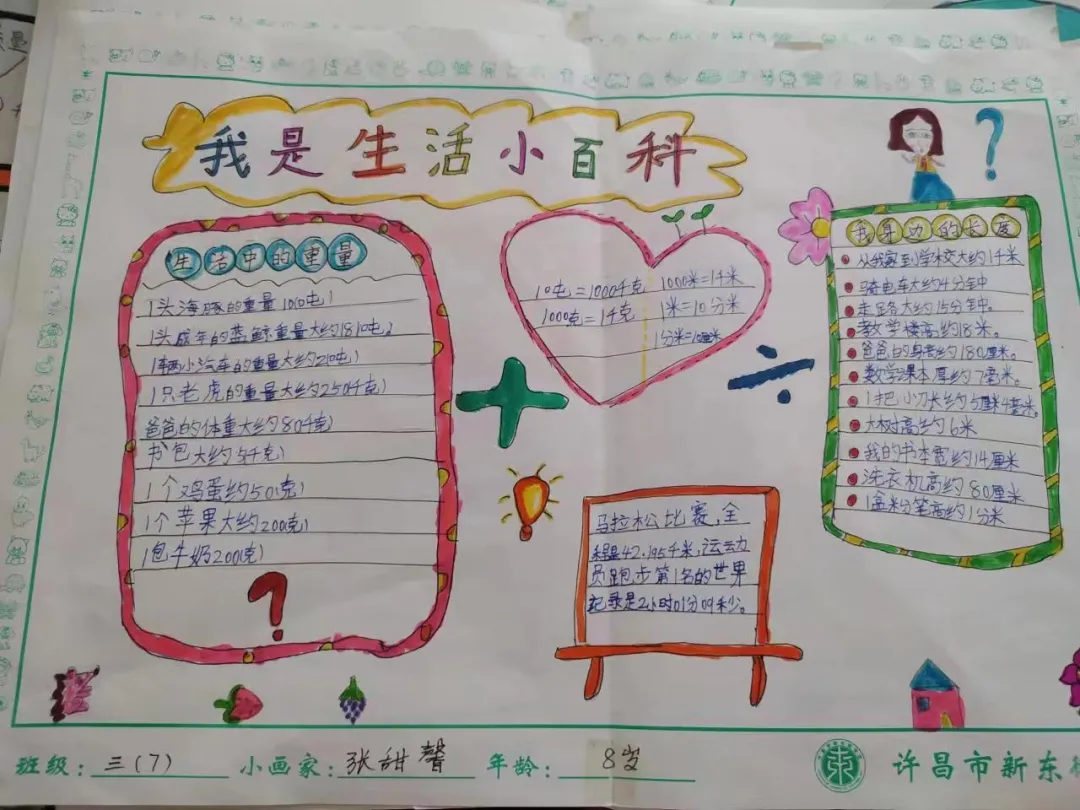 我是生活小百科
生活中的重量
1头海豚的重量100吨
1头成年的蓝鲸重量大约1810吨。
1辆小汽车的重量大约210吨
1只老虎的重量大约250千克
爸爸的体重大约80千克
书包大约5千克
1个鸡蛋约50克
1个苹果大约200克
1包牛奶200克
?
10吨=1000千克
1000克=1千克
1000米=1千米
1米=10分米
1分米=10厘米
马拉松比赛,全
程是42.195千米,运动
员跑步第1名的世界
记录是2小时01分09秒。
?
我身边的长度
从我家到学校大约1千米
骑电车大约4分钟
走路大约15分钟.
教学楼高约18米。
爸爸的身高约180厘米。
数学课本厚约7毫米。
1把小刀长约5厘米4毫米。
大树高约6米
我的书本宽约14厘米
洗衣机高约80厘米
1盒粉笔高约1分米
班级:三(7) 小画家:张甜馨 年龄:8岁
许昌市新东